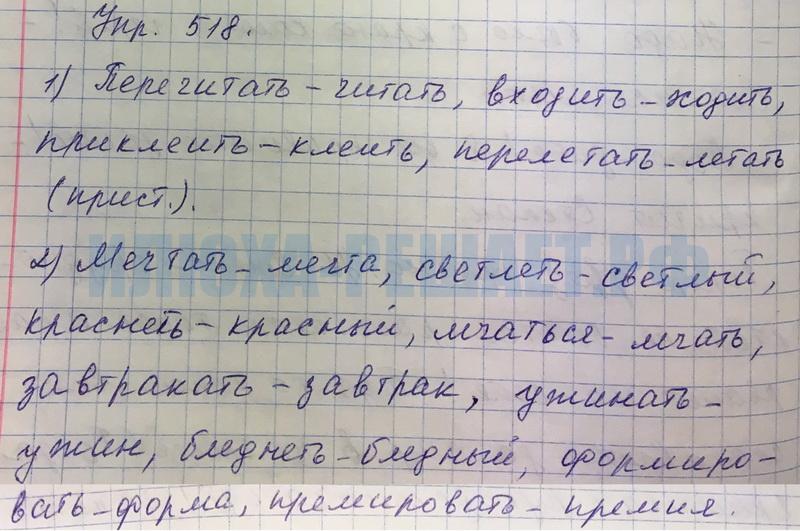 Упр. 518.
1) Перечитать – читать, входить – ходить,
приклеить – клеить, перелетать – летать
(прист.).
ИЛЮХА-РЕШАЕТ.РФ
2) Мечтать – мечта, светлеть – светлый,
краснеть – красный, мчаться – мчать,
завтракать – завтрак, ужинать –
ужин, бледнеть – бледный, оформиро-
вать – форма, премировать – премия.